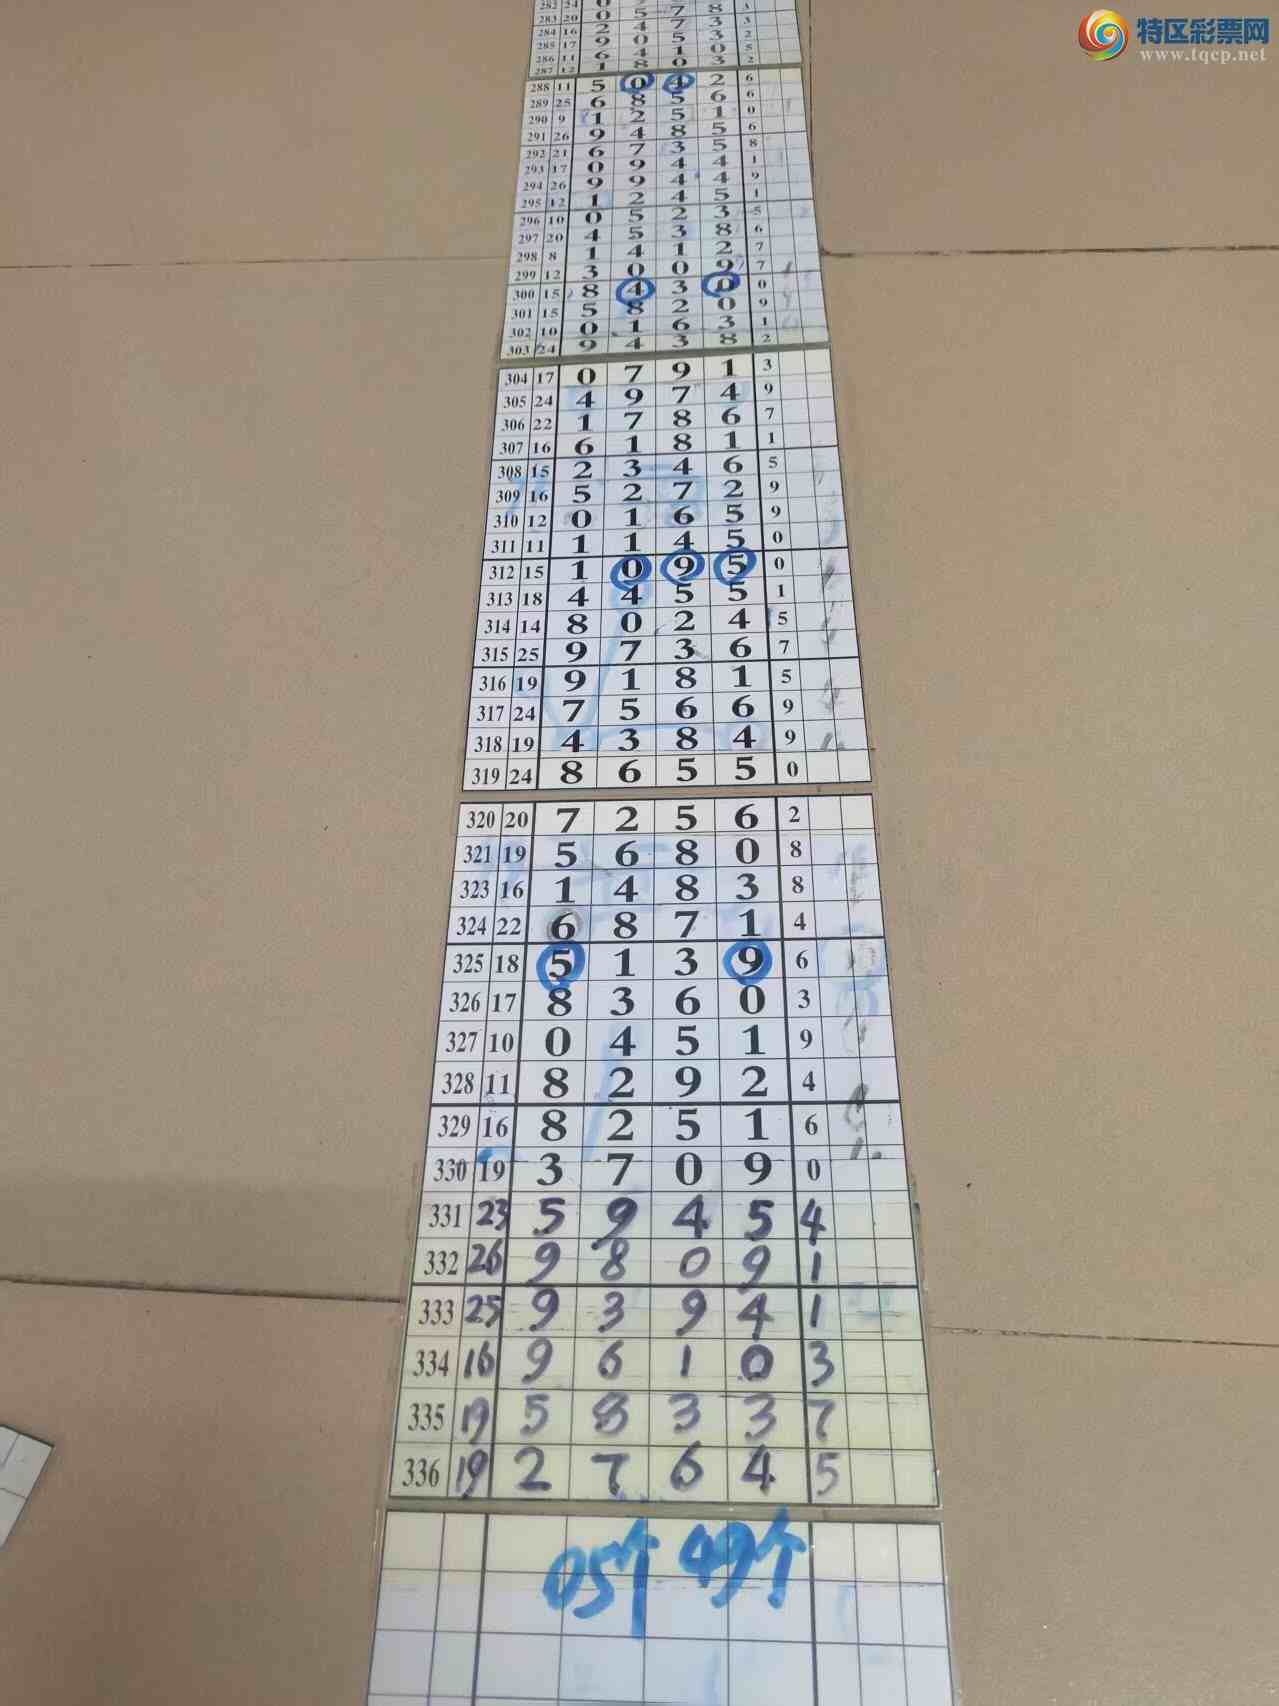 特区彩票网
www.tqcp.net
283 20 0 5 7 8 3
284 16 2 4 7 3 3
285 17 9 0 5 3 2
286 11 6 4 1 0 5
287 12 1 8 0 3 2
288 11 5 0 4 2 6
289 25 6 8 5 6 6
290 9 1 2 5 1 0
291 26 9 4 8 5 6
292 21 6 7 3 5 8
293 17 0 9 4 4 1
294 26 9 9 4 4 9
295 12 1 2 4 5 1
296 10 0 5 2 3 5
297 20 4 5 3 8 6
298 8 1 4 1 2 7
299 12 3 0 0 9 7
300 15 8 4 3 0 0
301 15 5 8 2 0 9
302 10 0 1 6 3 1
303 24 9 4 3 8 2
304 17 0 7 9 1 3
305 24 4 9 7 4 9
306 22 1 7 8 6 7
307 16 6 1 8 1 1
308 15 2 3 4 6 5
309 16 5 2 7 2 9
310 12 0 1 6 5 9
311 11 1 1 4 5 0
312 15 1 0 9 5 0
313 18 4 4 5 5 1
314 14 8 0 2 4 5
315 25 9 7 3 6 7
316 19 9 1 8 1 5
317 24 7 5 6 6 9
318 19 4 3 8 4 9
319 24 8 6 5 5 0
320 20 7 2 5 6 2
321 19 5 6 8 0 8
323 16 1 4 8 3 8
324 22 6 8 7 1 4
325 18 5 1 3 9 6
326 17 8 3 6 0 3
327 10 0 4 5 1 9
328 11 8 2 9 2 4
329 16 8 2 5 1 6
330 19 3 7 0 9 0
331 23 5 9 4 5 4
332 26 9 8 0 9 1
333 25 9 3 9 4 1
334 16 9 6 1 0 3
335 19 5 8 3 3 7
336 19 2 7 6 4 5
05个 49个